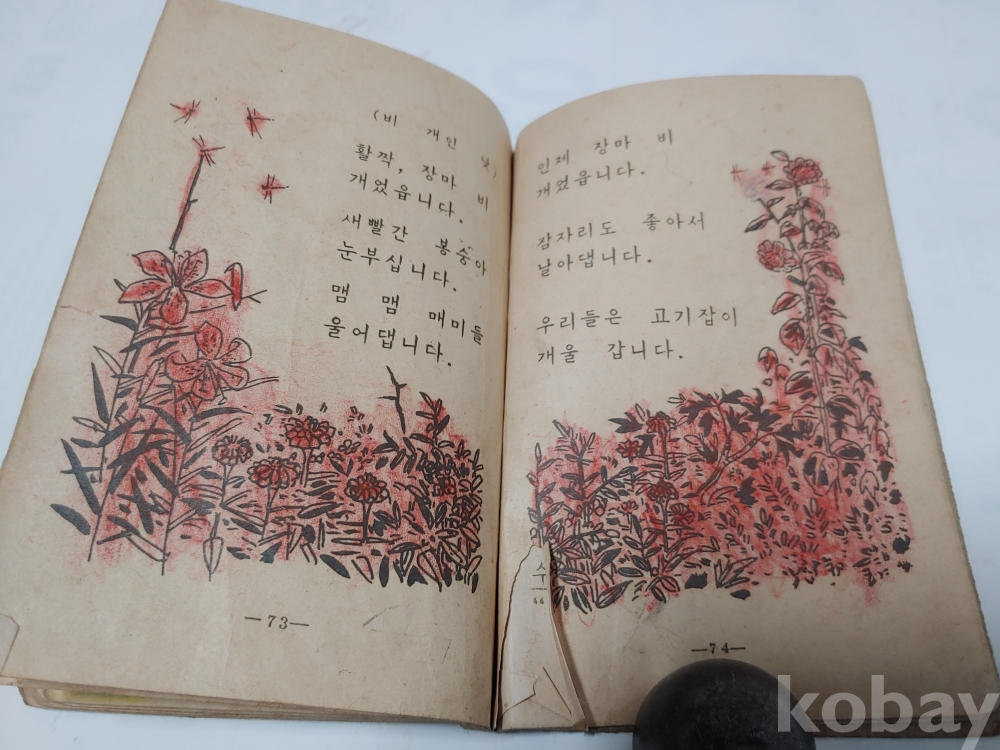 (비 개인 낮)
활짝, 장마 비
개었읍니다.
새빨간 봉숭아
눈부십니다.
맴 맴 매미들
울어댑니다.
—73—
인제 장마 비
개었읍니다.
잠자리도 좋아서
날아댑니다.
우리들은 고기잡이
개울 갑니다.
수
—74—
kobay